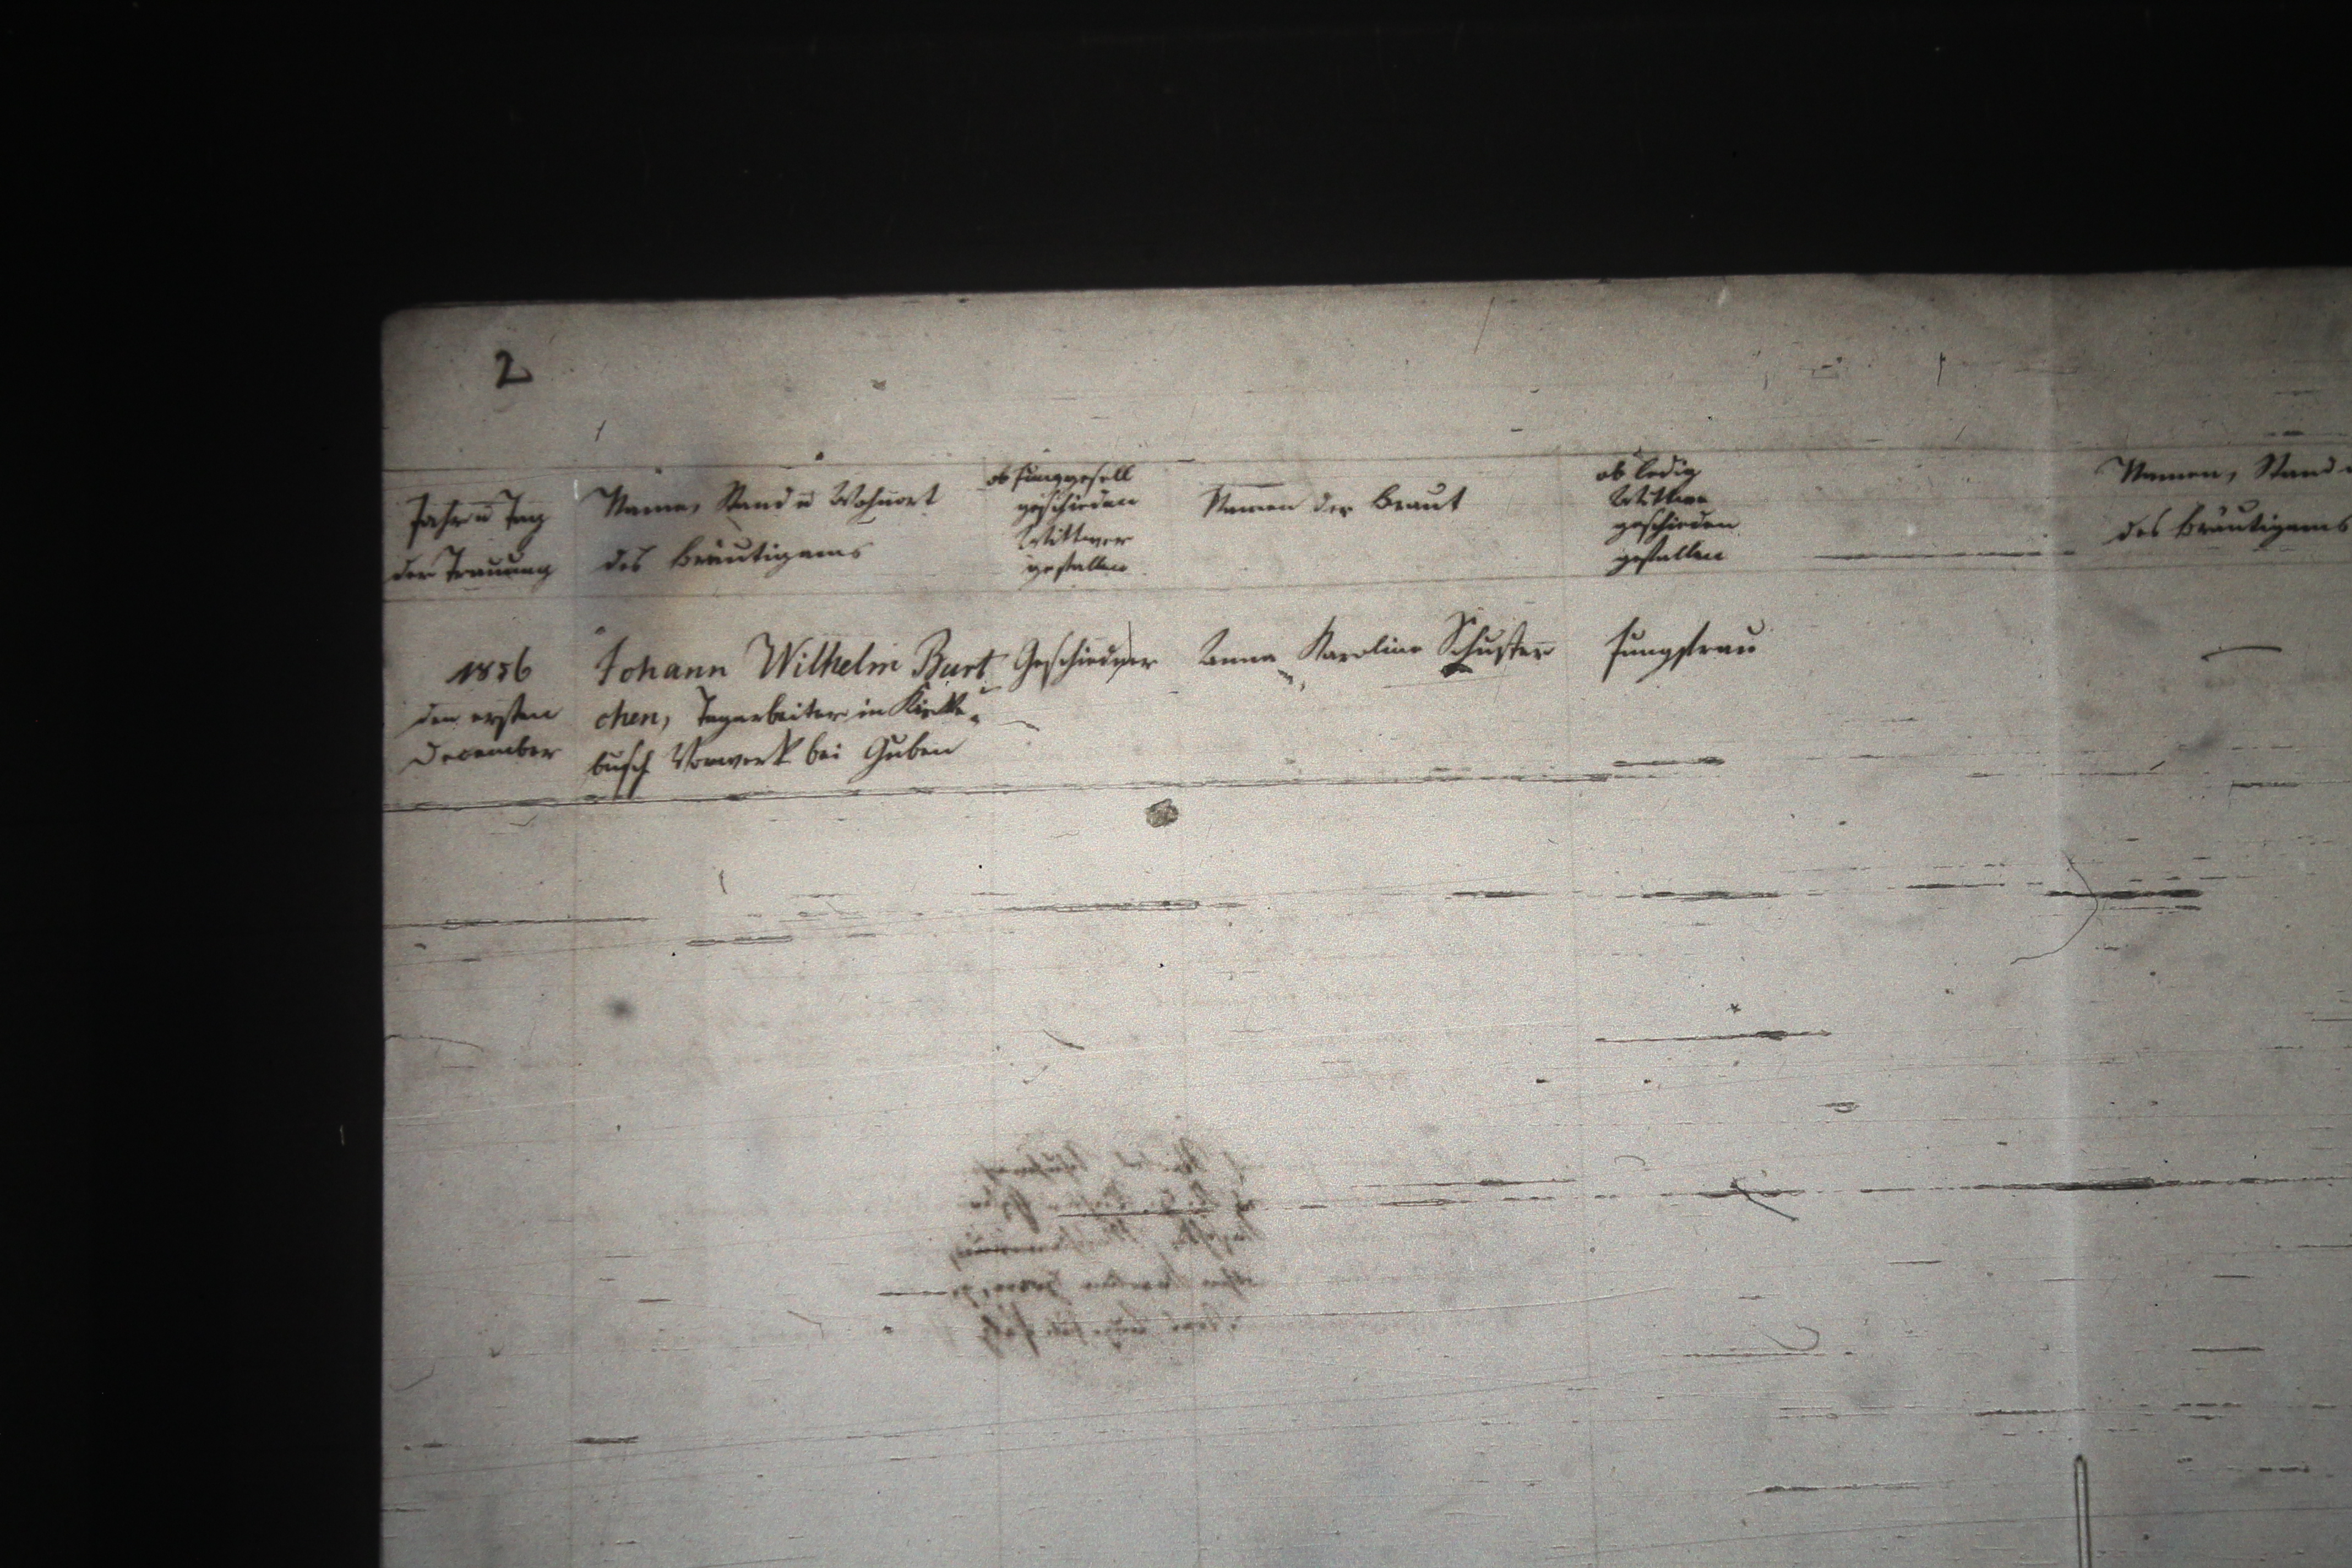 2
Jahr u Tag
der Trauung
Name, Stand u Wohnort
des Bräutigams
ob Junggesell
geschieden
Wittwer
gefallen
Namen der Braut
ob ledig
Wittwe
geschieden
gefallen
Namen, Stand
des Bräutigams
1856
den ersten
December
Johann Wilhelm Burt
chen, Tagarbeiter in
busch Vorwerk bei Guben
Geschiedner
Anna Karoline Schuster
Jungfrau